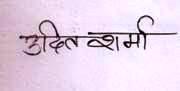 उदित शर्मा